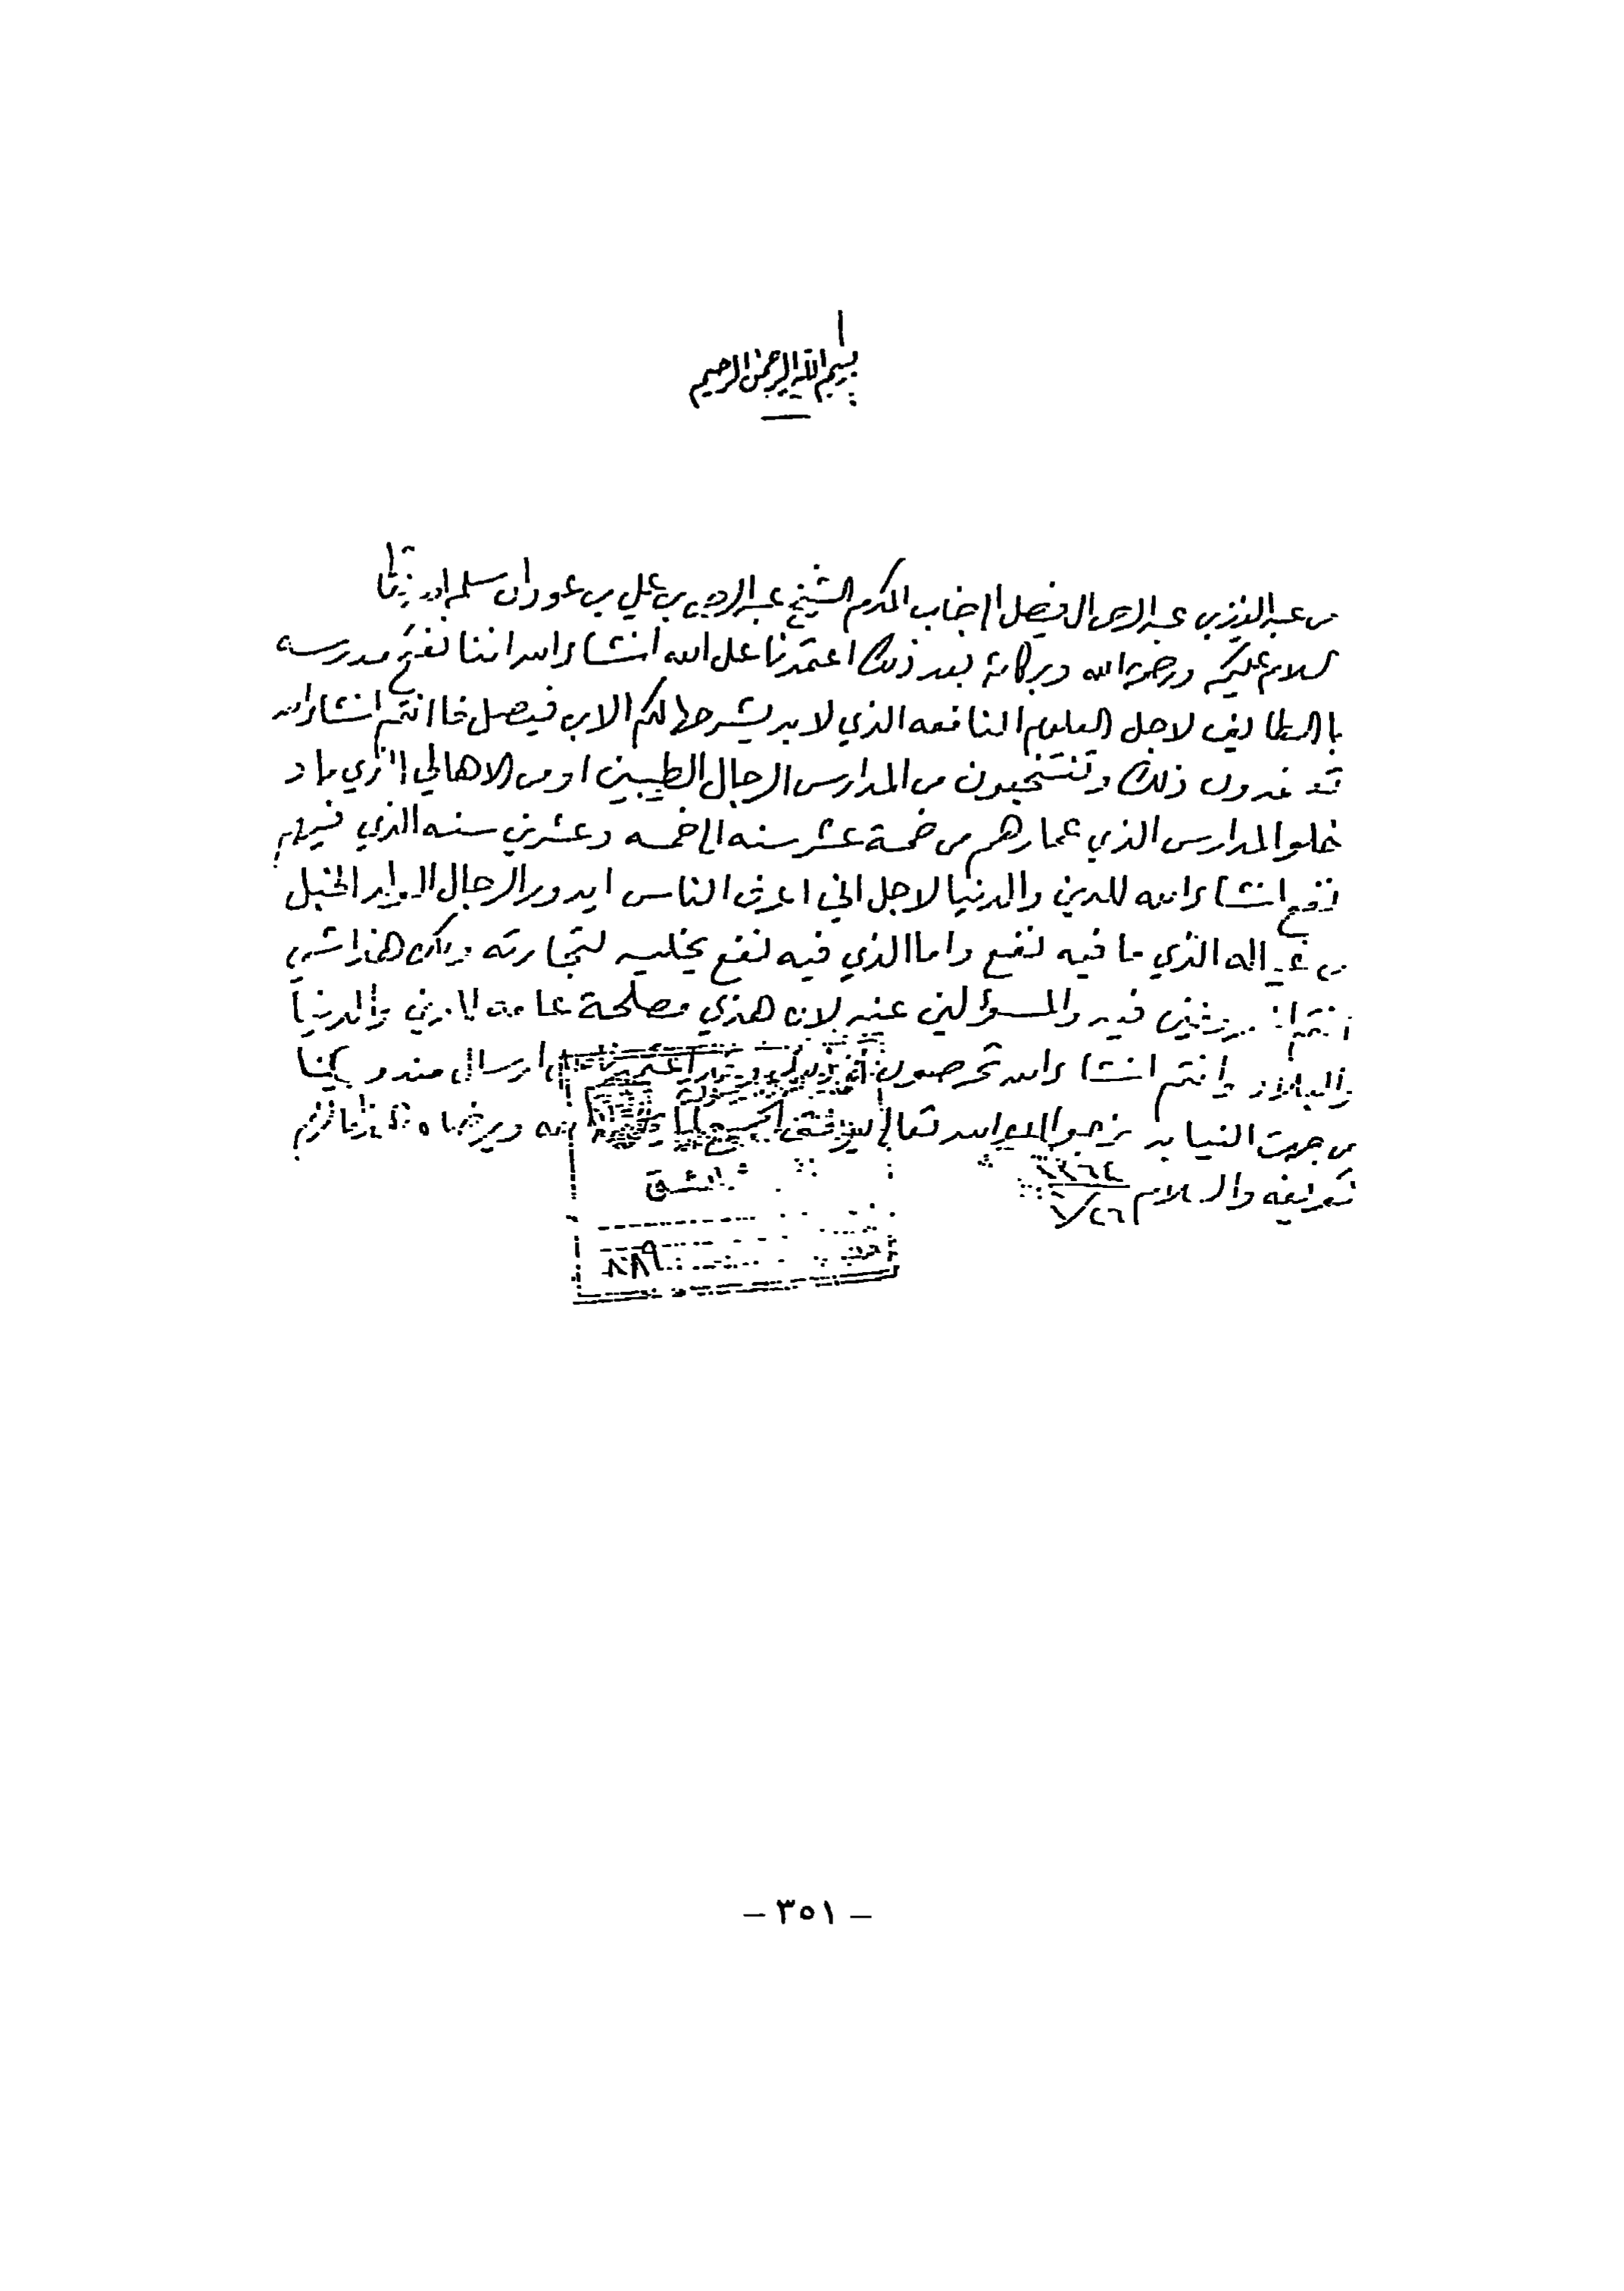 بسم الله الرحمن الرحيم
من عبد العزيز بن عبد الرحمن الفيصل الى جناب المكرم الشيخ عبد الرحمن بن علي بن عودان سلمه الله تعالى
السلام عليكم ورحمة الله وبركاته بعد ذلك اعتمدنا على الله انشاء الله اننا نفتح مدرسه
بالطايف لاجل العلوم النافعه الذي لا بد يشرحها لكم الابن فيصل فا انتم انشاء الله
ذلك وتنتخبون من المدارس الرجال الطيبين او من الاهالي الذي ما د
خلوا المدارس الذي عمارهم من خمسة عشر سنه الى خمسه وعشرين سنه الذي فيهم
نفع انشاء الله للدين والدنيا لاجل اني اعرف الناس ايدور الرجال الولد الخبل
من عياله الذي ما فيه نفع واما الذي فيه نفع يخليه لتجارته ولكن هذا شي
انتم فيه والمسؤلين عنه لان هذي مصلحة عامه للدين والدنيا
والبلاد وانتم انشاء الله تحرصون ارسال مندوبينا
من جهت النيابه نرجوا الله تعالى يوفق الجميع لما ويرضاه هذا مالزم
تعريفه والسلام
١٣٦٤
٢٦/٧
٨٨٩
– ٣٥١ –